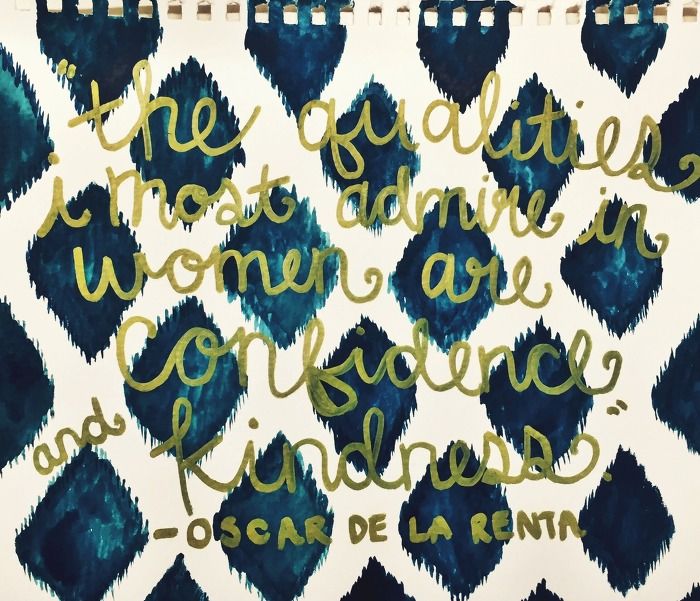 "the qualities
i most admire in
women are
confidence
and kindness."
-OSCAR DE LA RENTA